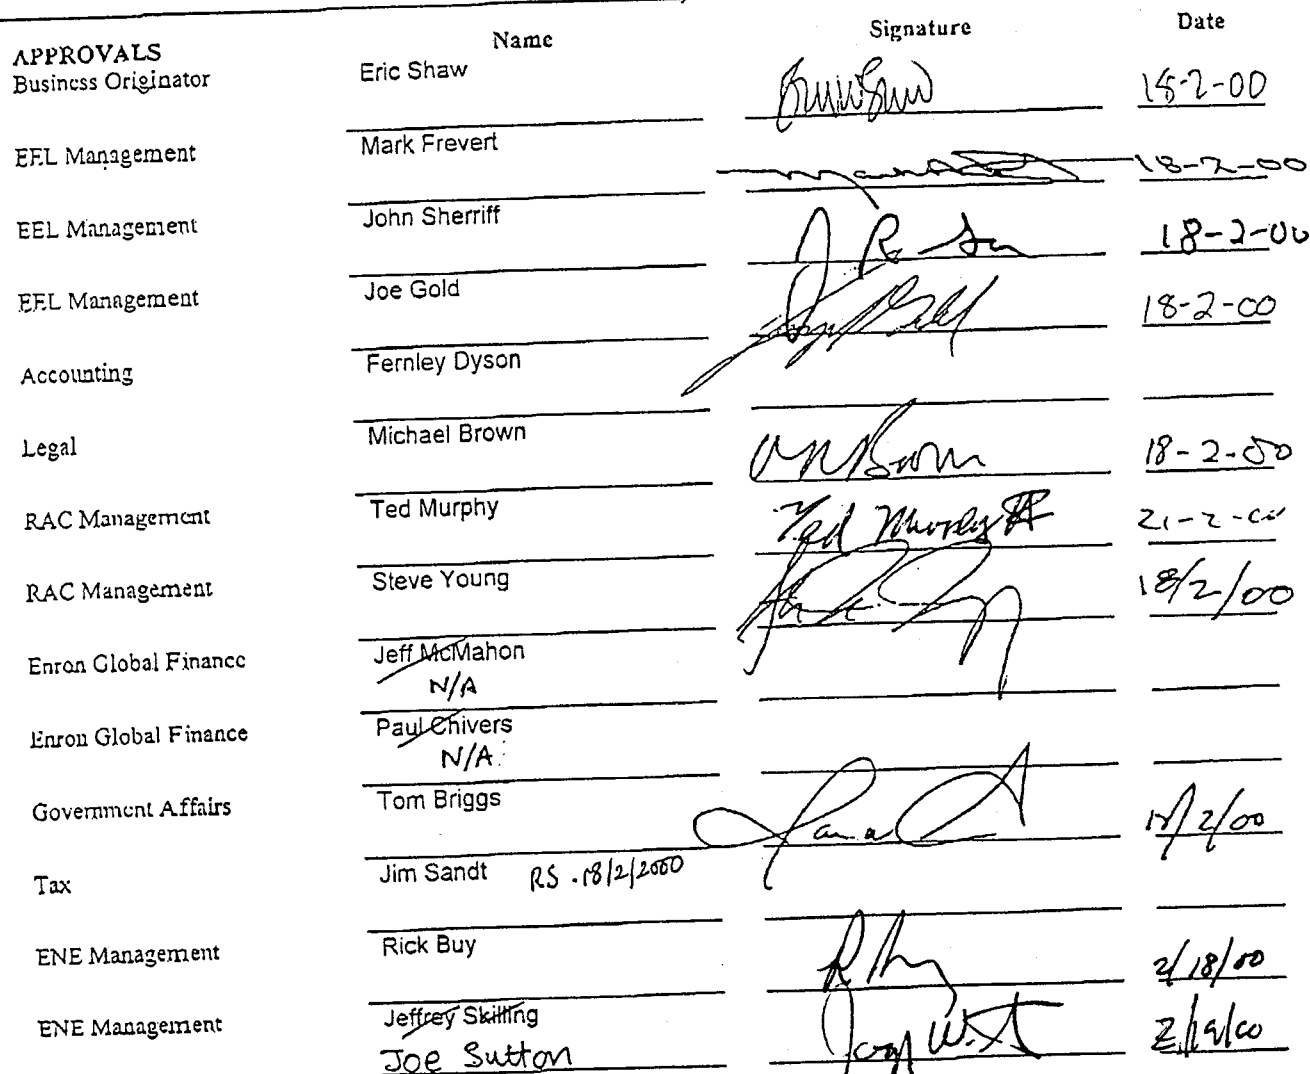 Name Signature Date
APPROVALS
Business Originator Eric Shaw 18-2-00
EEL Management Mark Frevert 18-2-00
EEL Management John Sherriff 18-2-00
EEL Management Joe Gold 18-2-00
Accounting Fernley Dyson
Legal Michael Brown 18-2-00
RAC Management Ted Murphy Ted Murphy 21-2-00
RAC Management Steve Young 18/2/00
Enron Global Finance Jeff McMahon
N/A
Enron Global Finance Paul Chivers
N/A
Government Affairs Tom Briggs 18/2/00
Tax Jim Sandt RS . 18/2/2000
ENE Management Rick Buy 2/18/00
ENE Management Jeffrey Skilling 2/19/00
Joe Sutton